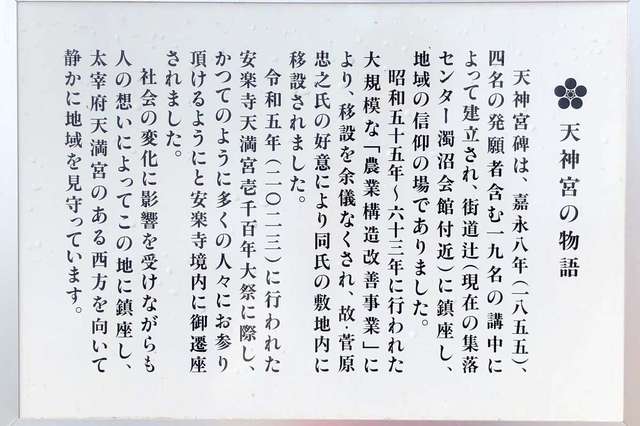 天神宮の物語
天神宮碑は、嘉永八年（一八五五）、
四名の発願者含む一九名の講中に
よって建立され、街道辻（現在の集落
センター濁沼会館付近）に鎮座し、
地域の信仰の場でありました。
昭和五十五年～六十三年に行われた
大規模な「農業構造改善事業」に
より、移設を余儀なくされ、故・菅原
忠之氏の好意により同氏の敷地内に
移設されました。
令和五年（二〇二三）に行われた
安楽寺天満宮壱千百年大祭に際し、
かつてのように多くの人々にお参り
頂けるようにと安楽寺境内に御遷座
されました。
社会の変化に影響を受けながらも
人の想いによってこの地に鎮座し、
太宰府天満宮のある西方を向いて
静かに地域を見守っています。